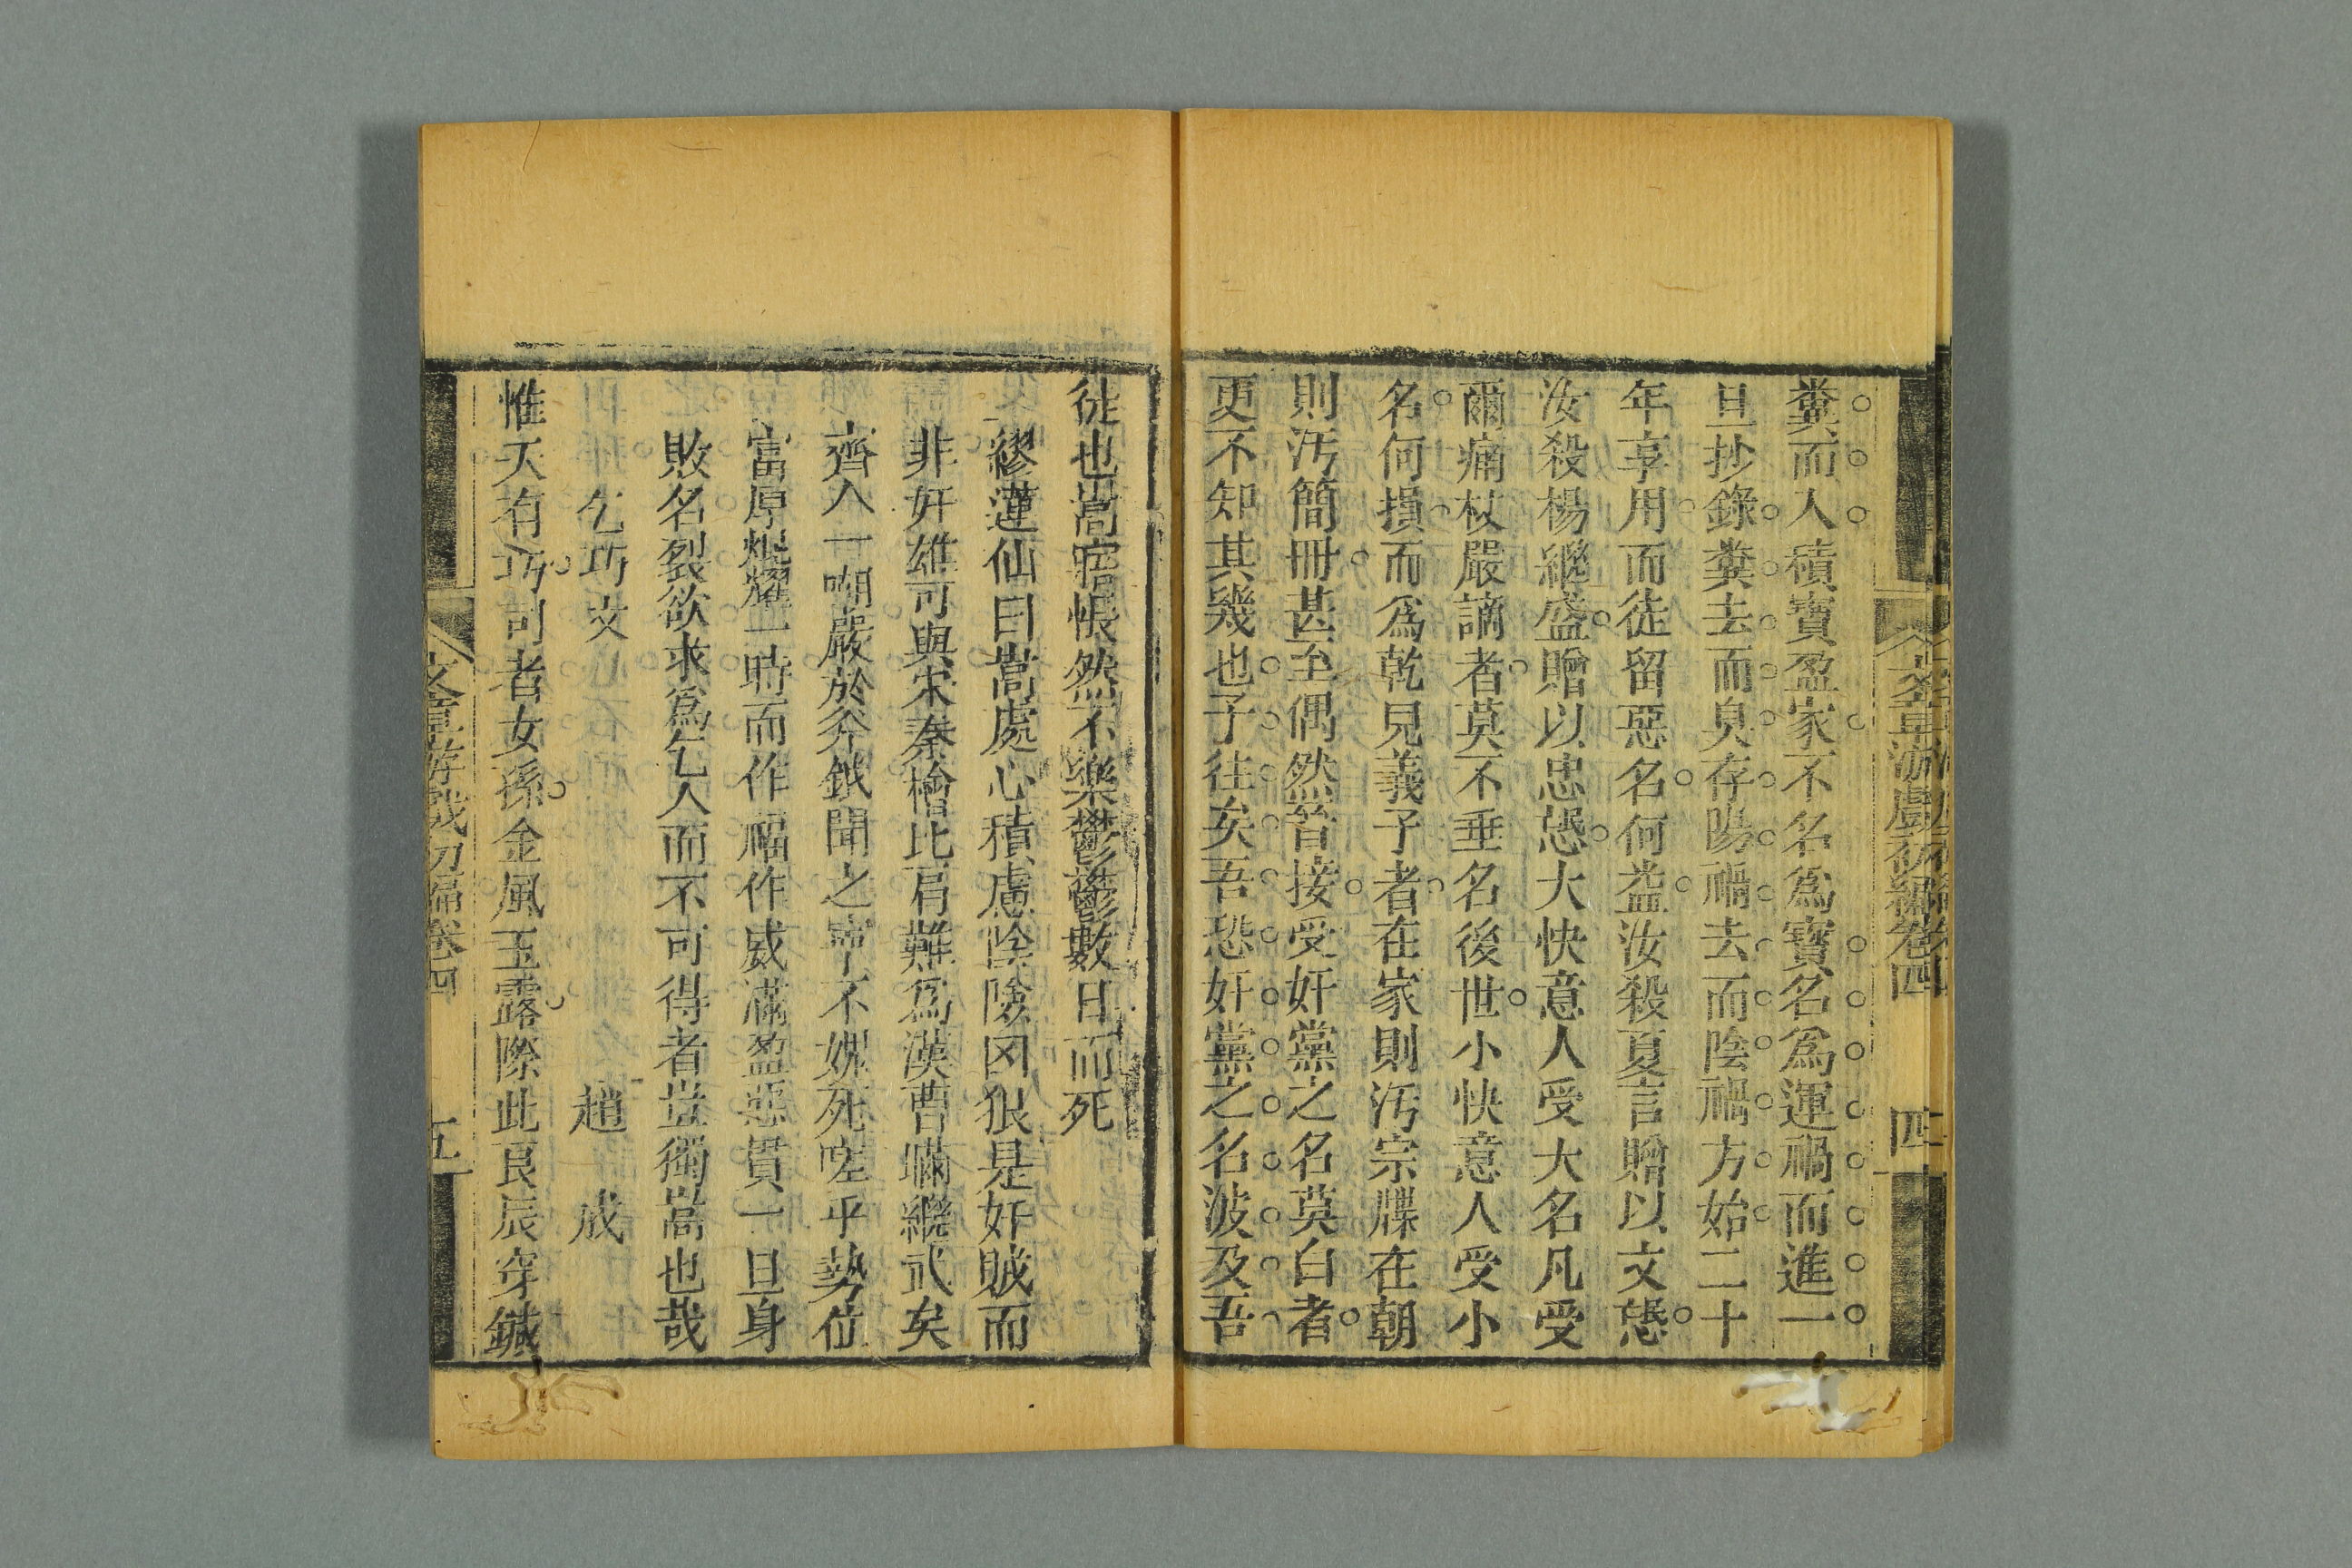 糞而人積寶盈家不名爲寶名爲運禍而進一
旦抄錄糞去而臭存陽禍去而陰禍方始二十
年享用而徒留惡名何益汝殺夏言贈以文愍
汝殺楊繼盛贈以忠愍大快意人受大名凡受
爾痛杖嚴謫者莫不垂名後世小快意人受小
名何損而爲乾兒義子者在家則汚宗牒在朝
則汚簡冊甚至偶然晉接受奸黨之名莫白者
更不知其幾也子往矣吾恐奸黨之名波及吾
四
徒也嵩寤悵然不樂鬱鬱數日而死
繆蓮仙曰嵩處心積慮陰險図狠是奸賊而
非奸雄可與宋秦檜比肩難爲漢曹瞞繼武矣
齊人一嘲嚴於斧鉞聞之寧不媿死嗟乎勢位
富厚焜耀一時而作福作威滿盈惡貫一旦身
敗名裂欲求爲乞人而不可得者豈獨嵩也哉
乞巧文 趙 成
惟天有巧司者女孫金風玉露際此良辰穿鍼
文章游戲初編卷四 五